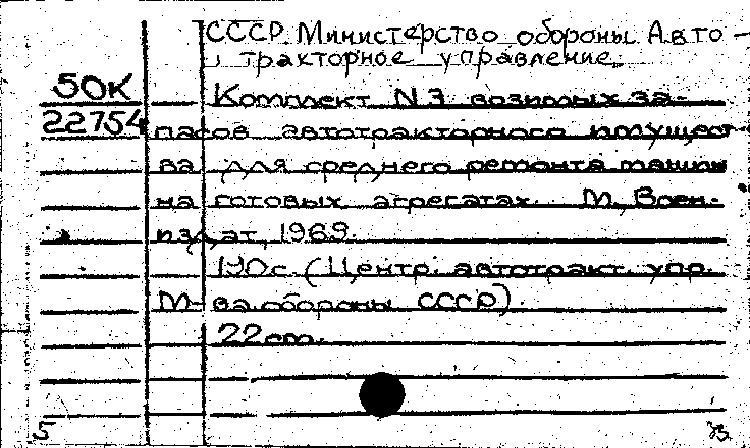 СССР. Министерство обороны. Авто-
тракторное управление.
50К
Комплект N3 возимых за-
22754
пасов автотракторного имущест-
ва для среднего ремонта машин
на готовых агрегатах. М., Воен-
издат, 1969.
190с. (Центр. автотракт. упр.
М-ва обороны СССР)
22cm.